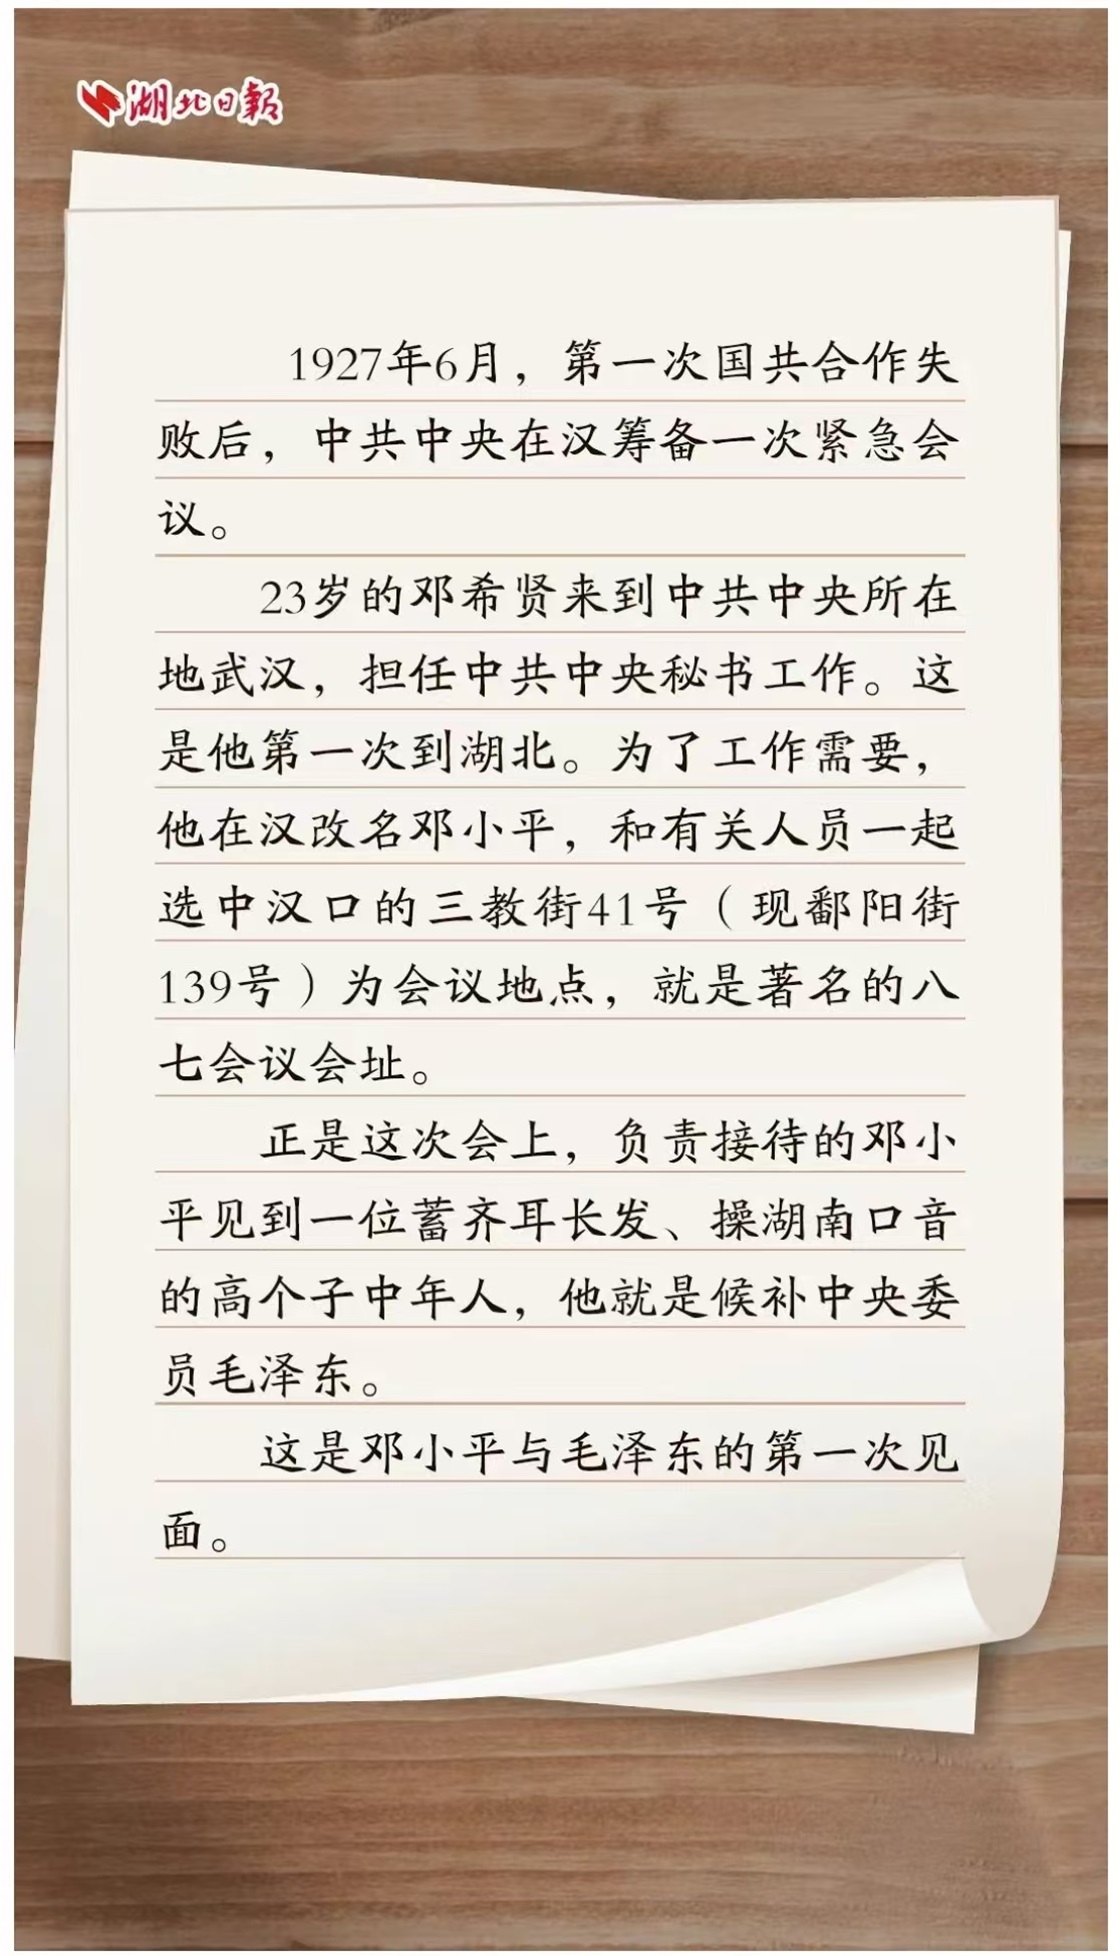 湖北日報
1927年6月，第一次国共合作失
败后，中共中央在汉筹备一次紧急会
议。
23岁的邓希贤来到中共中央所在
地武汉，担任中共中央秘书工作。这
是他第一次到湖北。为了工作需要，
他在汉改名邓小平，和有关人员一起
选中汉口的三教街41号（现鄱阳街
139号）为会议地点，就是著名的八
七会议会址。
正是这次会上，负责接待的邓小
平见到一位蓄齐耳长发、操湖南口音
的高个子中年人，他就是候补中央委
员毛泽东。
这是邓小平与毛泽东的第一次见
面。